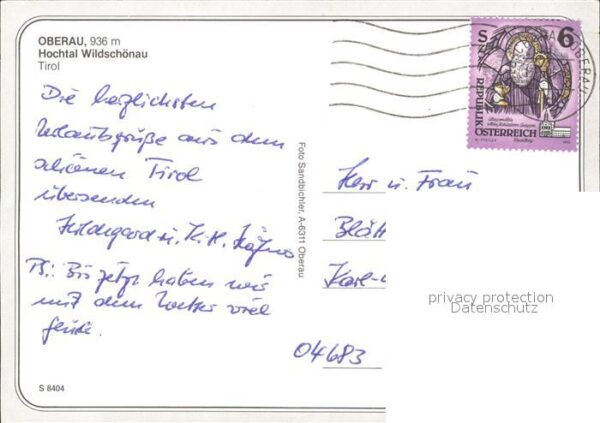 OBERAU, 936 m
Hochtal Wildschönau
Tirol
Die herzlichsten
Urlaubsgrüße aus dem
schönen Tirol
übersenden
Hildegard u. K. H.
PS: Bis jetzt haben wir
mit dem Wetter viel
S 8404
Foto Sandbichler, A-6311 Oberau
S
6
REPUBLIK
ÖSTERREICH
OBERAU
Herr u. Frau
Blätt
Karl-
04683
privacy protection
Datenschutz